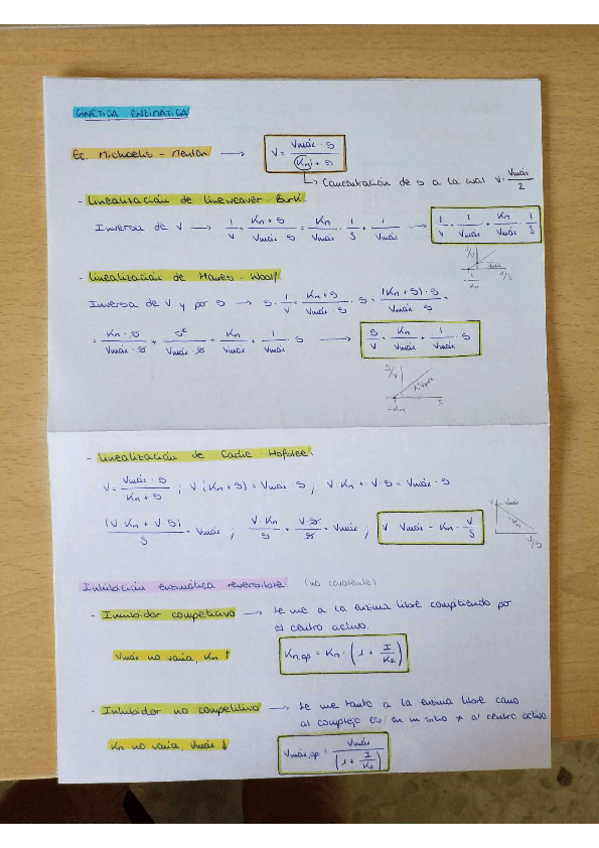 CINÉTICA ENZIMÁTICA
Ec. Michaelis - Menten → V = Vmáx · S / Km + S
↳ Concentración de S a la cual V = Vmáx / 2
- Linealización de Lineweaver - Burk.
Inversa de V → 1/V = Km + S / Vmáx · S = Km/Vmáx · 1/S + 1/Vmáx → 1/V = 1/Vmáx + Km/Vmáx · 1/S
1/V
1/S
- 1/Km
- Linealización de Hanes - Woolf
Inversa de V y por S → S · 1/V = Km + S / Vmáx · S · S = (Km + S) · S / Vmáx · S =
= Km · S / Vmáx · S + S² / Vmáx · S = Km/Vmáx + 1/Vmáx · S → S/V = Km/Vmáx + 1/Vmáx · S
S/V
1/Vmáx
S
-Km
- Linealización de Eadie - Hofstee.
V = Vmáx · S / Km + S ; V (Km + S) = Vmáx · S ; V · Km + V · S = Vmáx · S
(V · Km + V · S) / S = Vmáx ; V · Km / S + V · S / S = Vmáx ; V = Vmáx - Km · V/S
V
Vmáx
-Km
V/S
Inhibición enzimática reversible (no covalente)
- Inhibidor competitivo → Se une a la enzima libre compitiendo por
el centro activo.
Vmáx no varía, Km ↑
Km,ap = Km · (1 + I / KI)
- Inhibidor no competitivo → Se une tanto a la enzima libre como
al complejo ES en un sitio ≠ al centro activo
Km no varía, Vmáx ↓
Vmáx,ap = Vmáx / (1 + I / KI)